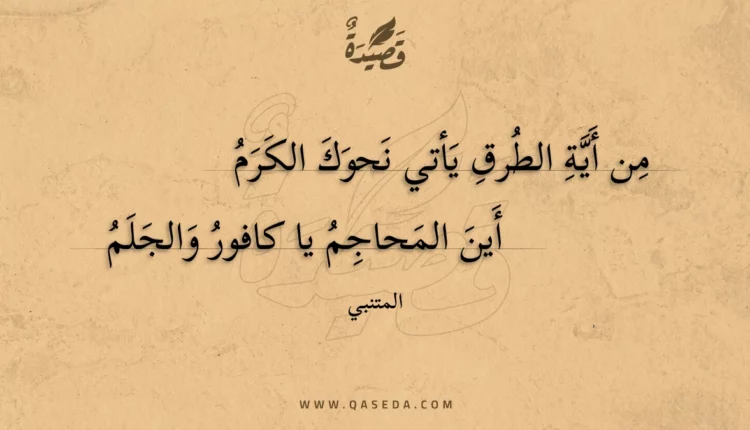 قَصِيْدَةٌ
مِن أَيَّةِ الطُرقِ يَأتي نَحوَكَ الكَرَمُ
أَينَ المَحاجِمُ يا كافورُ وَالجَلَمُ
المتنبي
WWW.QASEDA.COM